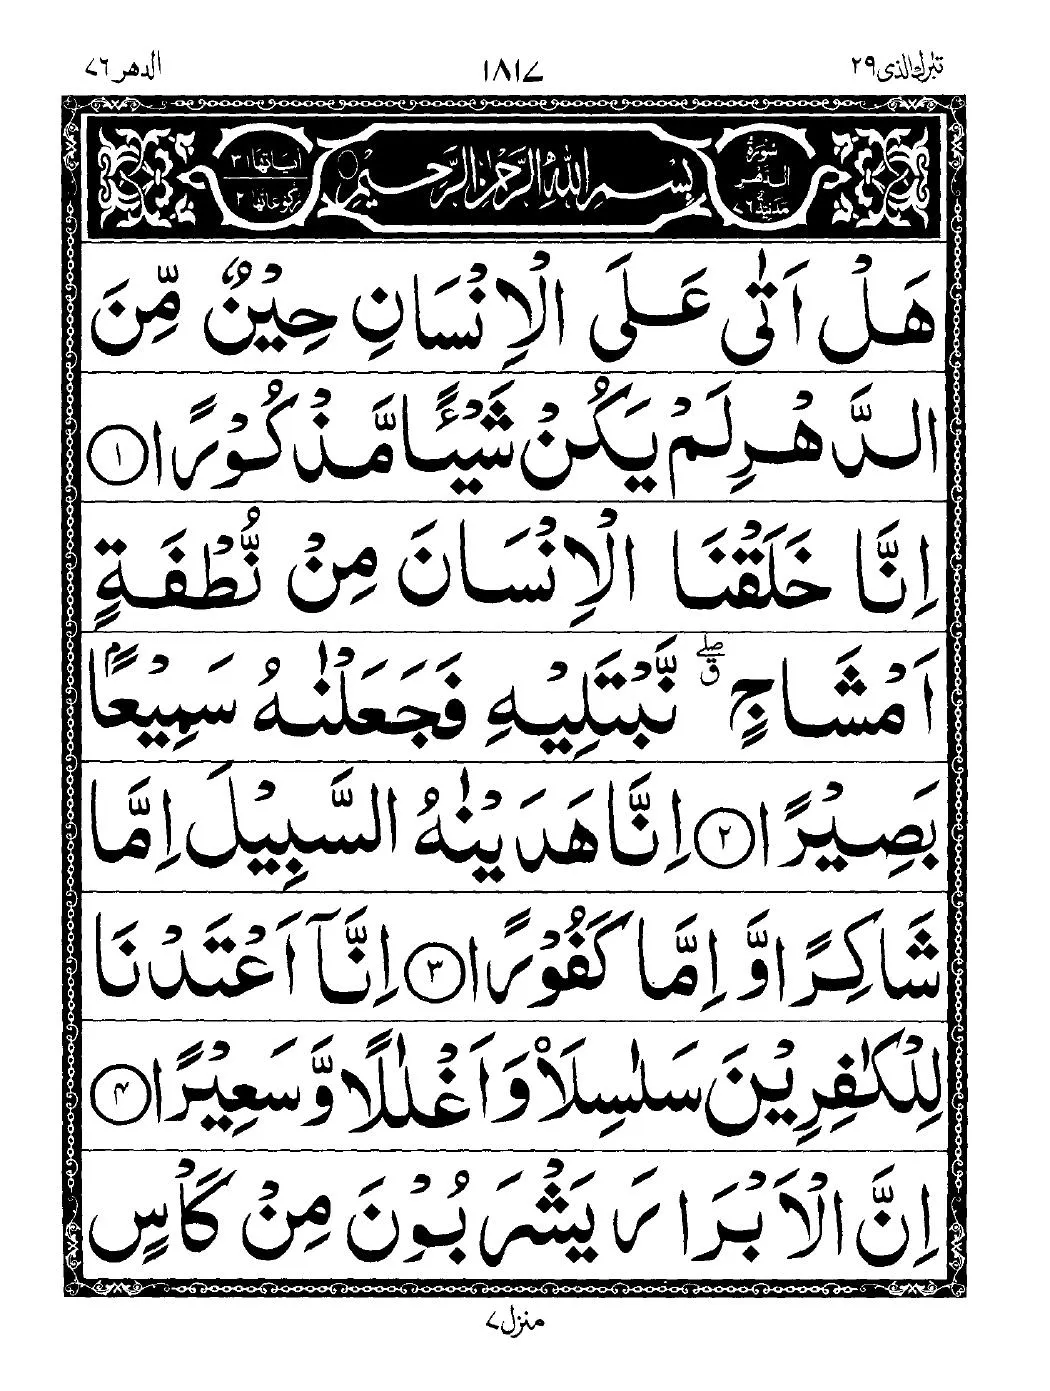 تبٰرك الذی ۲۹ ۱۸۱۷ الدهر ۷۶
سُوْرَةُ الدَّهْرِ مَدَنِيَّةٌ ۷۶ بِسْمِ اللهِ الرَّحْمٰنِ الرَّحِيْمِ اٰيَاتُهَا ۳۱ رُكُوْعَاتُهَا ۲
هَلْ اَتٰى عَلَى الْاِنْسَانِ حِيْنٌ مِّنَ
الدَّهْرِ لَمْ يَكُنْ شَيْـًٔا مَّذْكُوْرًا ۝۱
اِنَّا خَلَقْنَا الْاِنْسَانَ مِنْ نُّطْفَةٍ
اَمْشَاجٍ ۖق نَّبْتَلِيْهِ فَجَعَلْنٰهُ سَمِيْعًاۢ
بَصِيْرًا ۝۲ اِنَّا هَدَيْنٰهُ السَّبِيْلَ اِمَّا
شَاكِرًا وَّ اِمَّا كَفُوْرًا ۝۳ اِنَّآ اَعْتَدْنَا
لِلْكٰفِرِيْنَ سَلٰسِلَا۟ وَ اَغْلٰلًا وَّ سَعِيْرًا ۝۴
اِنَّ الْاَبْرَارَ يَشْرَبُوْنَ مِنْ كَاْسٍ
منزل ۷